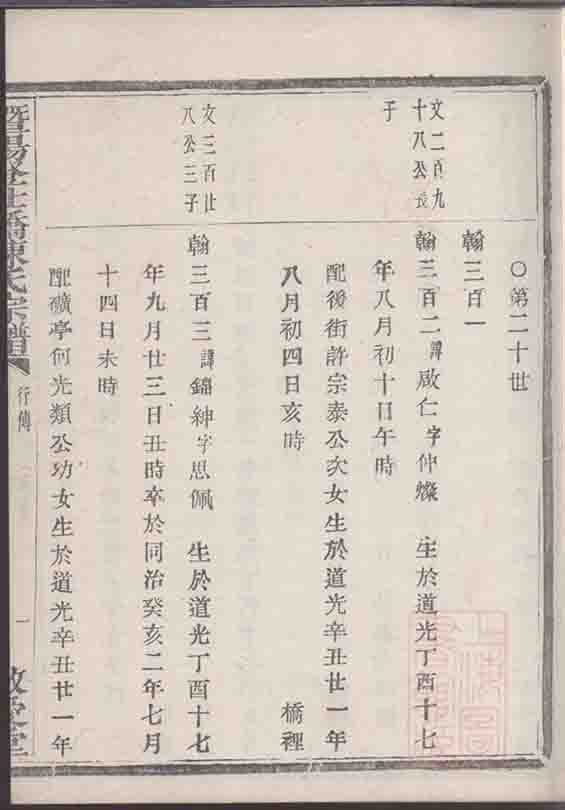 〇第二十世
翰三百一
文二百九
十八公長
子
翰三百二諱啟仁字仲燦 生於道光丁酉十七
年八月初十日午時
配後街許宗泰公次女生於道光辛丑廿一年
八月初四日亥時 橋裡
文三百廿
八公三子
翰三百三諱錦紳字思佩 生於道光丁酉十七
年九月廿三日丑時卒於同治癸亥二年七月
十四日未時
配礦亭何光類公幼女生於道光辛丑廿一年
暨陽橋陳氏宗譜
行傳
一